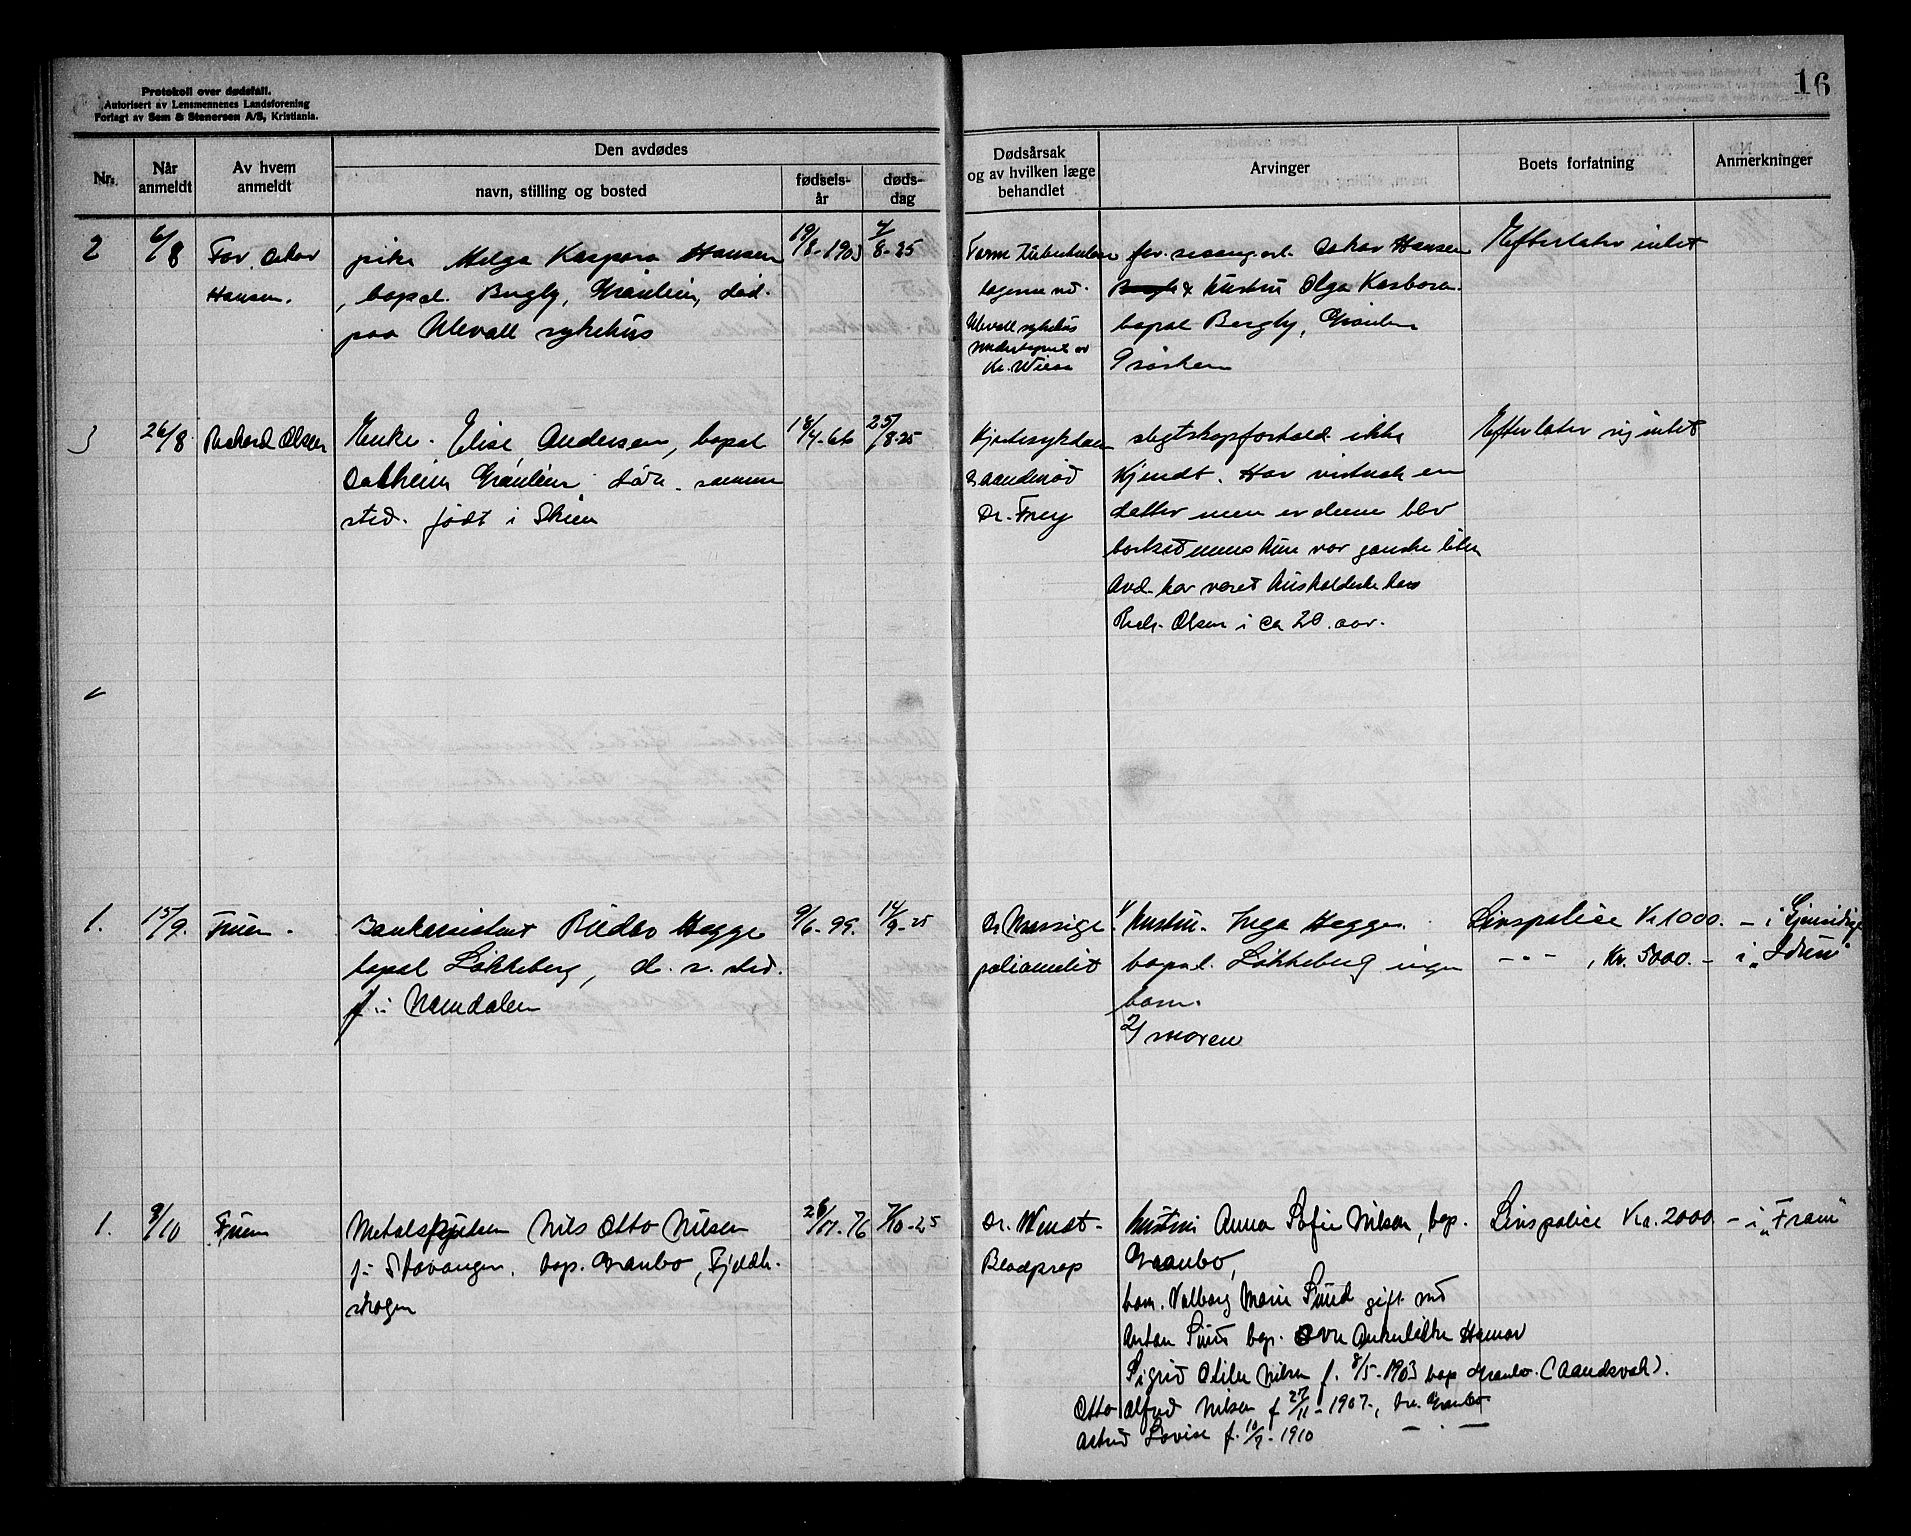 Protokoll over dødsfall.
Autorisert av Lensmennenes Landsforening
Forlagt av Sem & Stenersen A/S, Kristiania.
16
Nr.
Når anmeldt
Av hvem anmeldt
Den avdødes
navn, stilling og bosted
fødsels-år
døds-dag
Dødsårsak og av hvilken læge behandlet
Arvinger
Boets forfatning
Anmerkninger
2
6/8
Far Oskar
Hansen.
pike Helga Kaspara Hansen
, bopæl. Bergby, Grønlein, død.
paa Ulevall sykehus
19/8-1903
4/8-25
Ulevall sykehus
far. Oskar Hansen
& hustru Olga Kasbora
bopæl Bergby, Grønlein
Efterlater intet
3
26/8
Rikhard Olsen
Enke. Elise Andersen, bopæl
Solheim Grønlein døde. samme
sted. født i Skien
18/4-66
25/8-25
Hjertesykdom
Aandenød
Dr. Frey
slegtskapsforhold ikke
kjendt. Har vistnok en
datter men er denne blev
bortsat mens hun var ganske liten
Avd. har været husholderske hos
Rich. Olsen i ca 20 aar.
Efterlater sig intet
1.
15/9.
Fruen.
Bankassistent Hegge
bopæl Løkkeberg, d. s. sted.
f. i Namdalen
9/6-99.
14/9-25
1/ Hustru. Inga Hegge.
bopæl. Løkkeberg ingen
barn.
2/ moren
Livspolice Kr 1000. - i Gjensidige
- " - , Kr. 5000. - i "Idun"
1.
9/10
Fruen
Nils Otto Nilsen
f. i Stavanger. bop. Granbo, Fjeldh.
skogen
26/11-76
7/10-25
Dr. Wendt-
Blodprop
Hustru Anna Sofie Nilsen, bop.
Granbo,
barn. Valborg Marie Lund gift med
Anton Lund bop. Hamar
Sigrid Otilie Nilsen f. 8/5-1903 bop Granbo. (Aandsvak).
Otto Alfred Nilsen f 27/11-1907, bop. Granbo
Astrid Lovise f. 10/9-1910 - " -
Livspolice Kr. 2000 - i "Fram"